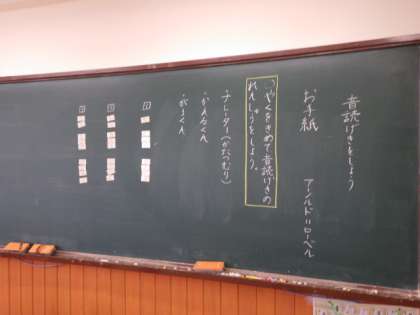 音読げきをしよう
お手紙　アーノルド=ローベル
やくをきめて音読げきの
れんしゅうをしよう。
・ナレーター(かたつむり)
・かえるくん
・がまくん